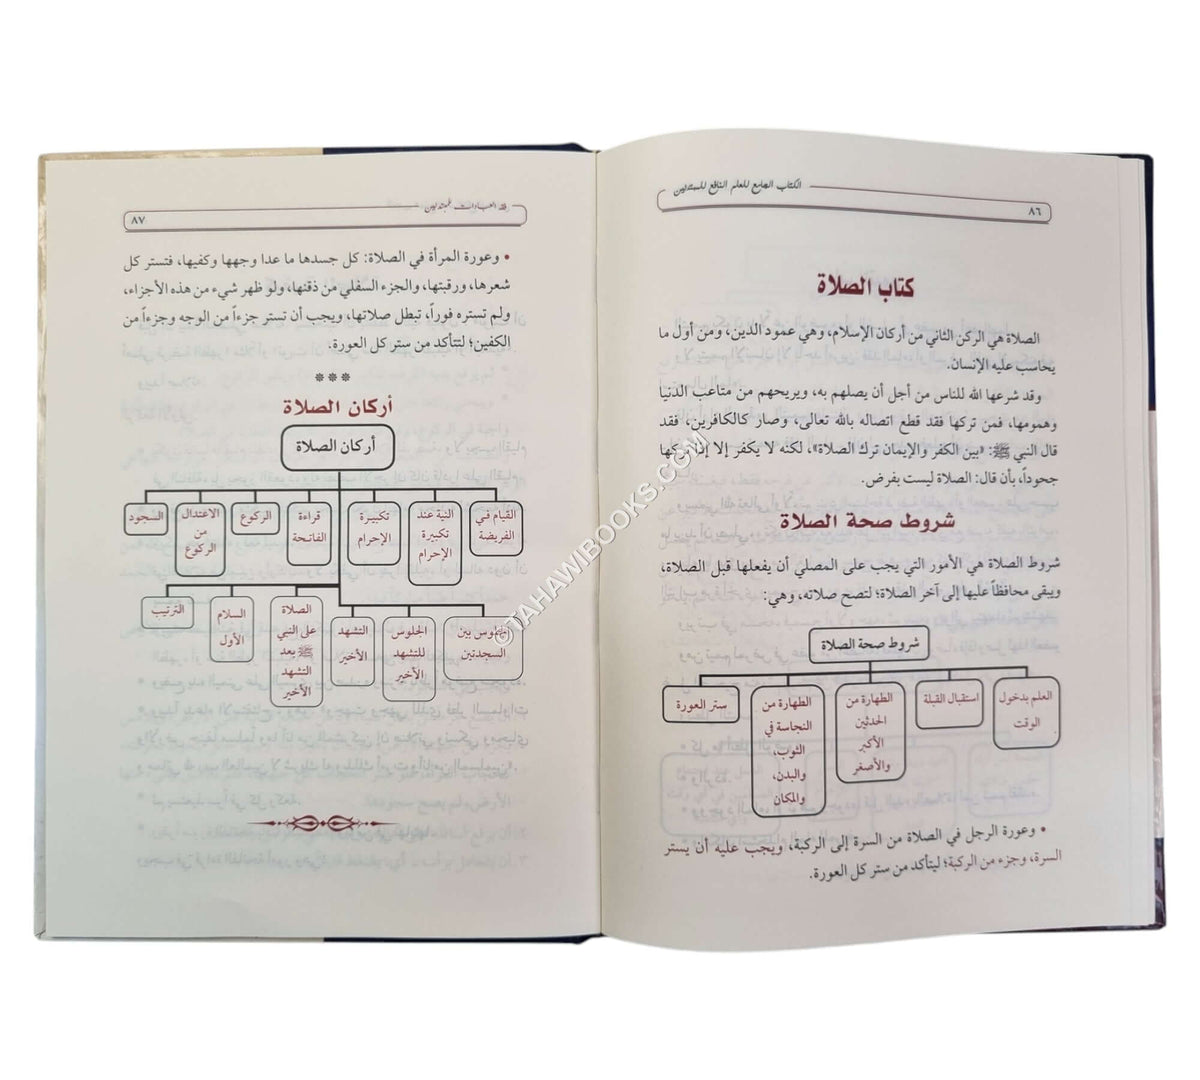 الكتاب الجامع للعلم النافع للمبتدئين
٨٦
كتاب الصلاة
الصلاة هي الركن الثاني من أركان الإسلام، وهي عمود الدين، ومن أول ما
يحاسب عليه الإنسان.
وقد شرعها الله للناس من أجل أن يصلهم به، ويريحهم من متاعب الدنيا
وهمومها، فمن تركها فقد قطع اتصاله بالله تعالى، وصار كالكافرين، فقد
قال النبي ﷺ: «بين الكفر والإيمان ترك الصلاة»، لكنه لا يكفر إلا إذا تركها
جحوداً، بأن قال: الصلاة ليست بفرض.
شروط صحة الصلاة
شروط صحة الصلاة هي الأمور التي يجب على المصلي أن يفعلها قبل الصلاة،
ويبقى محافظاً عليها إلى آخر الصلاة؛ لتصح صلاته، وهي:
شروط صحة الصلاة
العلم بدخول
الوقت
استقبال القبلة
الطهارة من
الحدثين
الأكبر
والأصغر
الطهارة من
النجاسة في
الثوب،
والبدن،
والمكان
ستر العورة
• وعورة الرجل في الصلاة من السرة إلى الركبة، ويجب عليه أن يستر
السرة، وجزء من الركبة؛ ليتأكد من ستر كل العورة.
فقه العبادات للمبتدئين
٨٧
• وعورة المرأة في الصلاة: كل جسدها ما عدا وجهها وكفيها، فتستر كل
شعرها، ورقبتها، والجزء السفلي من ذقنها، ولو ظهر شيء من هذه الأجزاء،
ولم تستره فوراً، تبطل صلاتها، ويجب أن تستر جزءاً من الوجه وجزءاً من
الكفين؛ لتتأكد من ستر كل العورة.
***
أركان الصلاة
أركان الصلاة
القيام في
الفريضة
النية عند
تكبيرة
الإحرام
تكبيرة
الإحرام
قراءة
الفاتحة
الركوع
الاعتدال
من
الركوع
السجود
الجلوس بين
السجدتين
الجلوس
للتشهد
الأخير
التشهد
الأخير
الصلاة
على النبي
ﷺ بعد
التشهد
الأخير
السلام
الأول
الترتيب
©TAHAWIBOOKS.COM